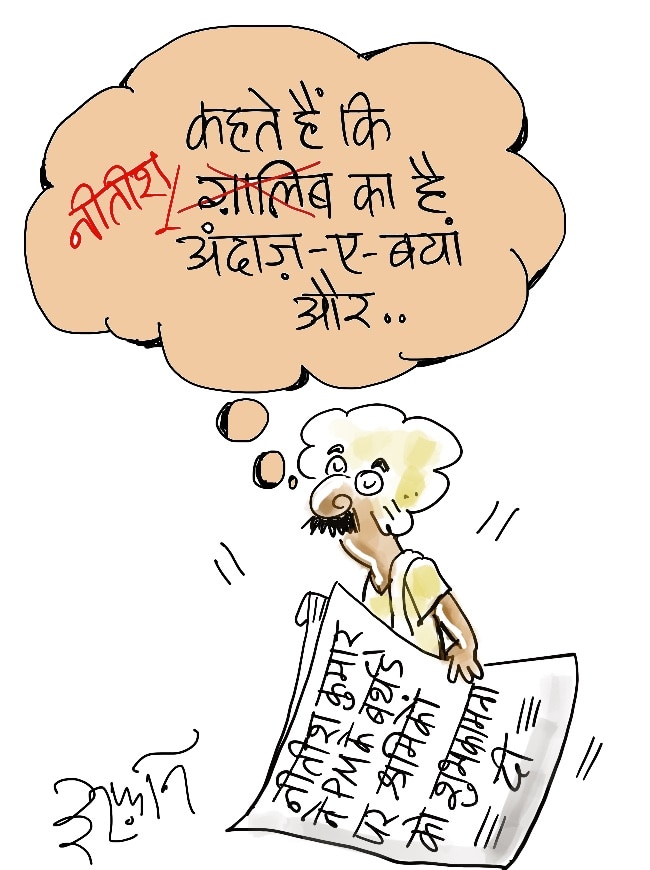 कहते हैं कि
नीतीश / ग़ालिब का है
अंदाज़-ए-बयां
और..
नीतीश कुमार
ने PM के बर्थडे
पर श्रमिकों
को शुभकामना
दी
इरफ़ान